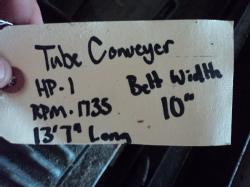 Tube Conveyer
HP. 1
Belt Width
RPM. 1735
10"
13'7" Long